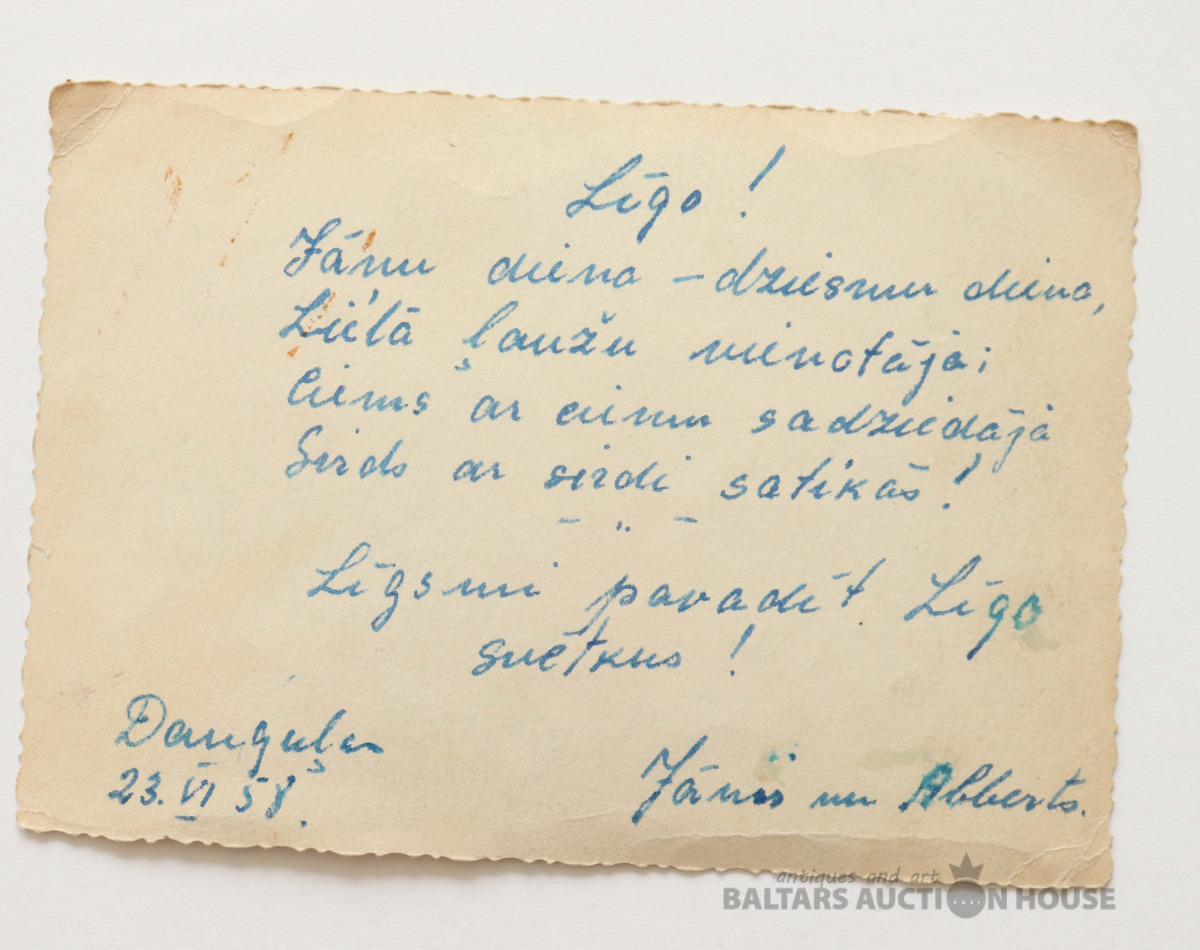 Līgo!
Jāņu diena – dziesmu diena,
Lielā ļaužu vienotāja;
Ciems ar ciemu sadziedājā
Sirds ar sirdi satikās!
– " –
Līgsmi pavadīt Līgo
svētkus!
Dauguļos
23. VI 58.
Jānis un Alberts.
antiques and art
BALTARS AUCTION HOUSE